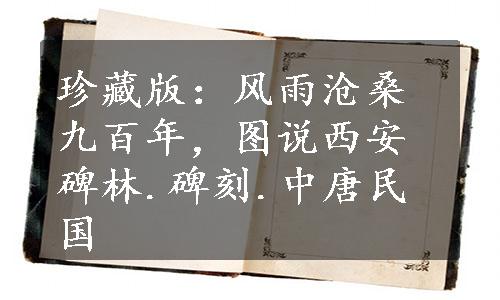 珍藏版：风雨沧桑
九百年，图说西安
碑林.碑刻.中唐民
国